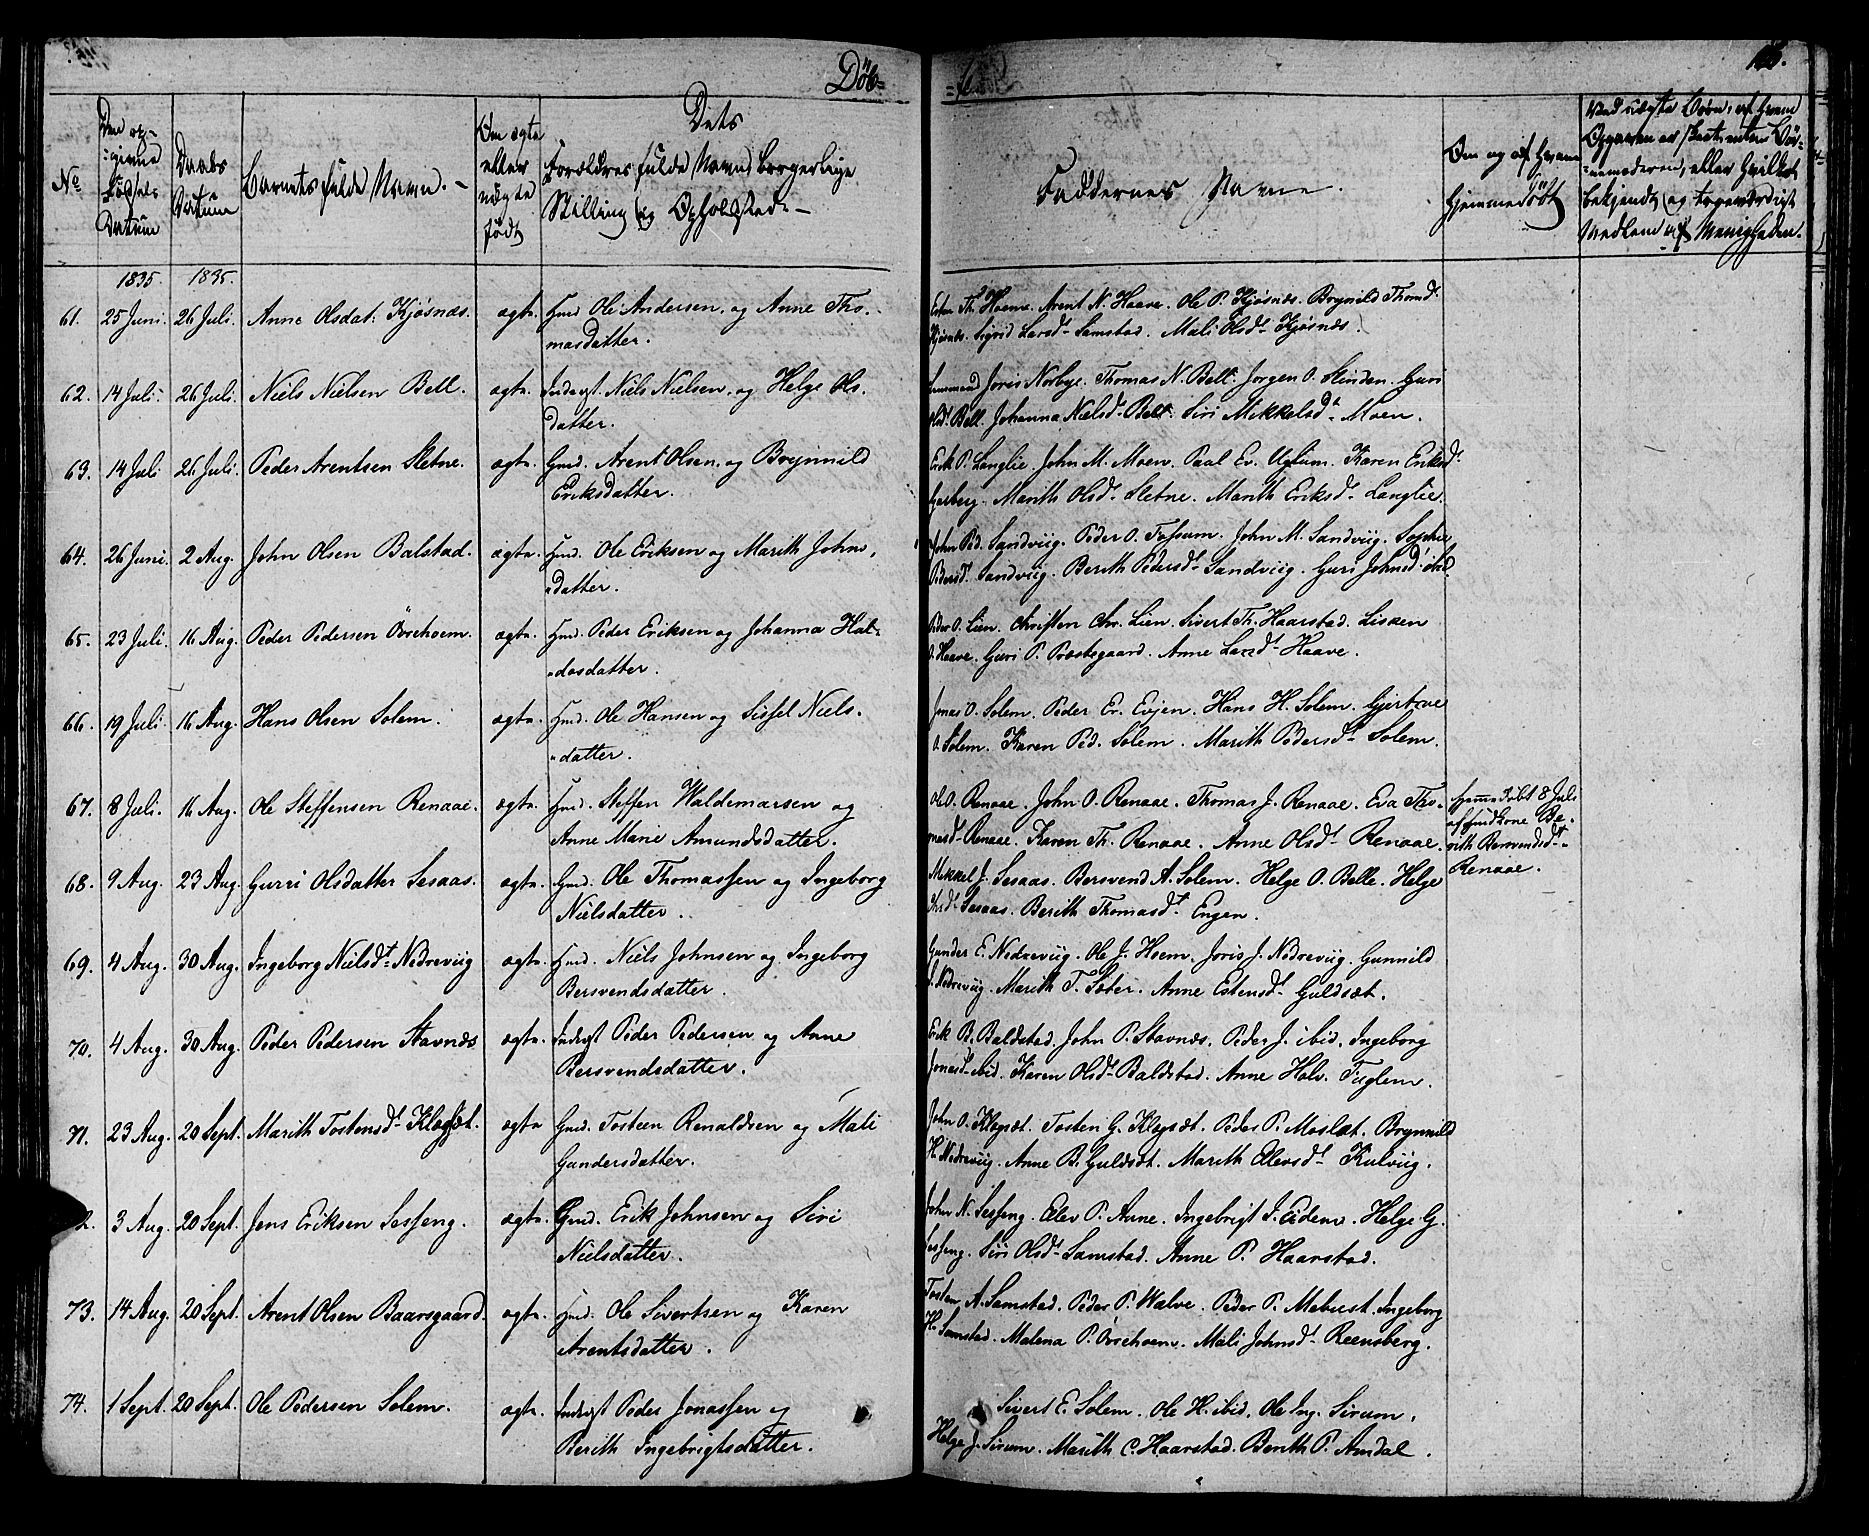 Døb=
No
Den op-
givne
Fødsels
Datum
Daabs
Datum
Barnets fulde Navn.
Om ægte
eller
uægte
født
Dets
Forældres fulde Navne Borgerlige
Stilling og Opholdsted.
Faddernes Navne.
Om og af hvem
hjemmedøbt
1835. 1835.
61. 25 Juni. 26 Juli. Anne Olsdat. Kjøsnæs. ægte. Gmd. Ole Andersen, og Anne Tho-
masdatter.
Th. Hoeme. Arent N. Haave. Ole P. Kjøsnæs. Brynild Thomd.
Kjøsnæs. Sigrid Larsd. Samstad. Mali Olsd. Kjøsnæs.
62. 14 Juli. 26 Juli. Niels Nielsen Bell. ægte. Inderst Niels Nielsen, og Helge Ols-
datter.
Joris Norbye. Thomas N. Bell. Jorgen O. Slinden. Guri
Olsd. Bell. Johanna Nielsd. Bell. Siri Mikkelsd. Moen.
63. 14 Juli 26 Juli. Peder Arentsen Sletne. ægte. Gmd. Arent Olsen, og Brynnild
Eriksdatter.
Erik P. Langlie. John M. Moen. Paal Ev. Uglum. Karen Eriksd.
Garberg. Marith Olsd. Sletne. Marith Eriksd. Langlie.
64. 26 Juni. 2 Aug. John Olsen Balstad. ægte. Hmd. Ole Eriksen og Marith Johns-
datter.
John Ped. Sandviig. Peder O. Fossum. John M. Sandviig. Sophie
Pedersd. Sandviig. Berith Pedersd. Sandviig. Guri Johnsd. ibid.
65. 23 Juli. 16 Aug. Peder Pedersen Övrehoem. ægte. Hmd. Peder Eriksen og Johanna Hal-
dosdatter.
Peder O. Lien. Christen Chr. Lien. Sivert Th. Haarstad. Lisken
O. Haave. Guri P. Præstegaard. Anne Larsd. Haave.
66. 19 Juli. 16 Aug. Hans Olsen Solem. ægte. Hmd. Ole Hansen og Sissel Niels-
datter.
Jonas O. Solem. Peder Er. Evjen. Hans H. Solem. Gjertrue
O. Solem. Karen Ped. Solem. Marith Pedersd. Solem.
67. 8 Juli. 16 Aug. Ole Steffensen Renaae. ægte. Hmd. Steffen Waldemarsen og
Anne Marie Amundsdatter.
Ole O. Renaae. John O. Renaae. Thomas J. Renaae. Eva Tho-
masd. Renaae. Karen Th. Renaae. Anne Olsd. Renaae.
hjemedøbt 8 Juli
af Huuskone Be-
rith Bersvendsd.
Renaae.
68. 9 Aug. 23 Aug. Gurri Olsdatter Sesaas. ægte. Gmd. Ole Thomassen og Ingeborg
Nielsdatter.
Mikkel J. Sesaas. Bersvend A. Solem. Helge O. Belle. Helge
Olsd. Sesaas. Berith Thomasd. Engen.
69. 4 Aug. 30 Aug. Ingeborg Nielsd. Nedreviig ægte. Hmd. Niels Johnsen og Ingeborg
Bersvendsdatter.
Gunder E. Nedreviig. Ole J. Hoem. Joris J. Nedreviig. Gunnild
Nedreviig. Marith T. Sæter. Anne Estensd. Guldsæt.
70. 4 Aug. 30 Aug. Peder Pedersen Stavnæs ægte. Inderst Peder Pedersen og Anne
Bersvendsdatter.
Erik B. Baldstad. John P. Stavnæs. Peder J. ibid. Ingeborg
Jonasd. ibid. Karen Olsd. Baldstad. Anne Halv. Fuglem.
71. 23 Aug. 20 Sept. Marith Tostensd. Klegsæt. ægte Gmd. Tosteen Renaldsen og Mali
Gundersdatter.
John O. Klegsæt. Tosten G. Klegsæt. Peder P. Moslæt. Brynnild
H. Nedreviig. Anne B. Guldsæt. Marith Elevsd. Kulviig.
2. 3 Aug. 20 Sept. Jens Eriksen Sesseng. ægte. Gmd. Erik Johnsen og Siri
Nielsdatter.
John N. Sesseng. Elev P. Aune. Ingebrigt J. Eidem. Helge G.
Sesseng. Siri Olsd. Samstad. Anne P. Haarstad.
73. 14 Aug. 20 Sept. Arent Olsen Baarsgaard. ægte. Hmd. Ole Sivertsen og Karen
Arentsdatter.
Tosten A. Samstad. Peder P. Walve. Peder P. Mebust. Ingeborg
H. Samstad. Malena P. Övrehoem. Mali Johnsd. Reensberg.
74. 1 Sept. 20 Sept. Ole Pedersen Solem. ægte. Inderst Peder Jonassen og
Berith Ingebrigtsdatter.
Sivert E. Solem. Ole H. ibid. Ole Ing. Sirum.
Helge J. Sirum. Marith C. Haarstad. Berith P. Amdal.